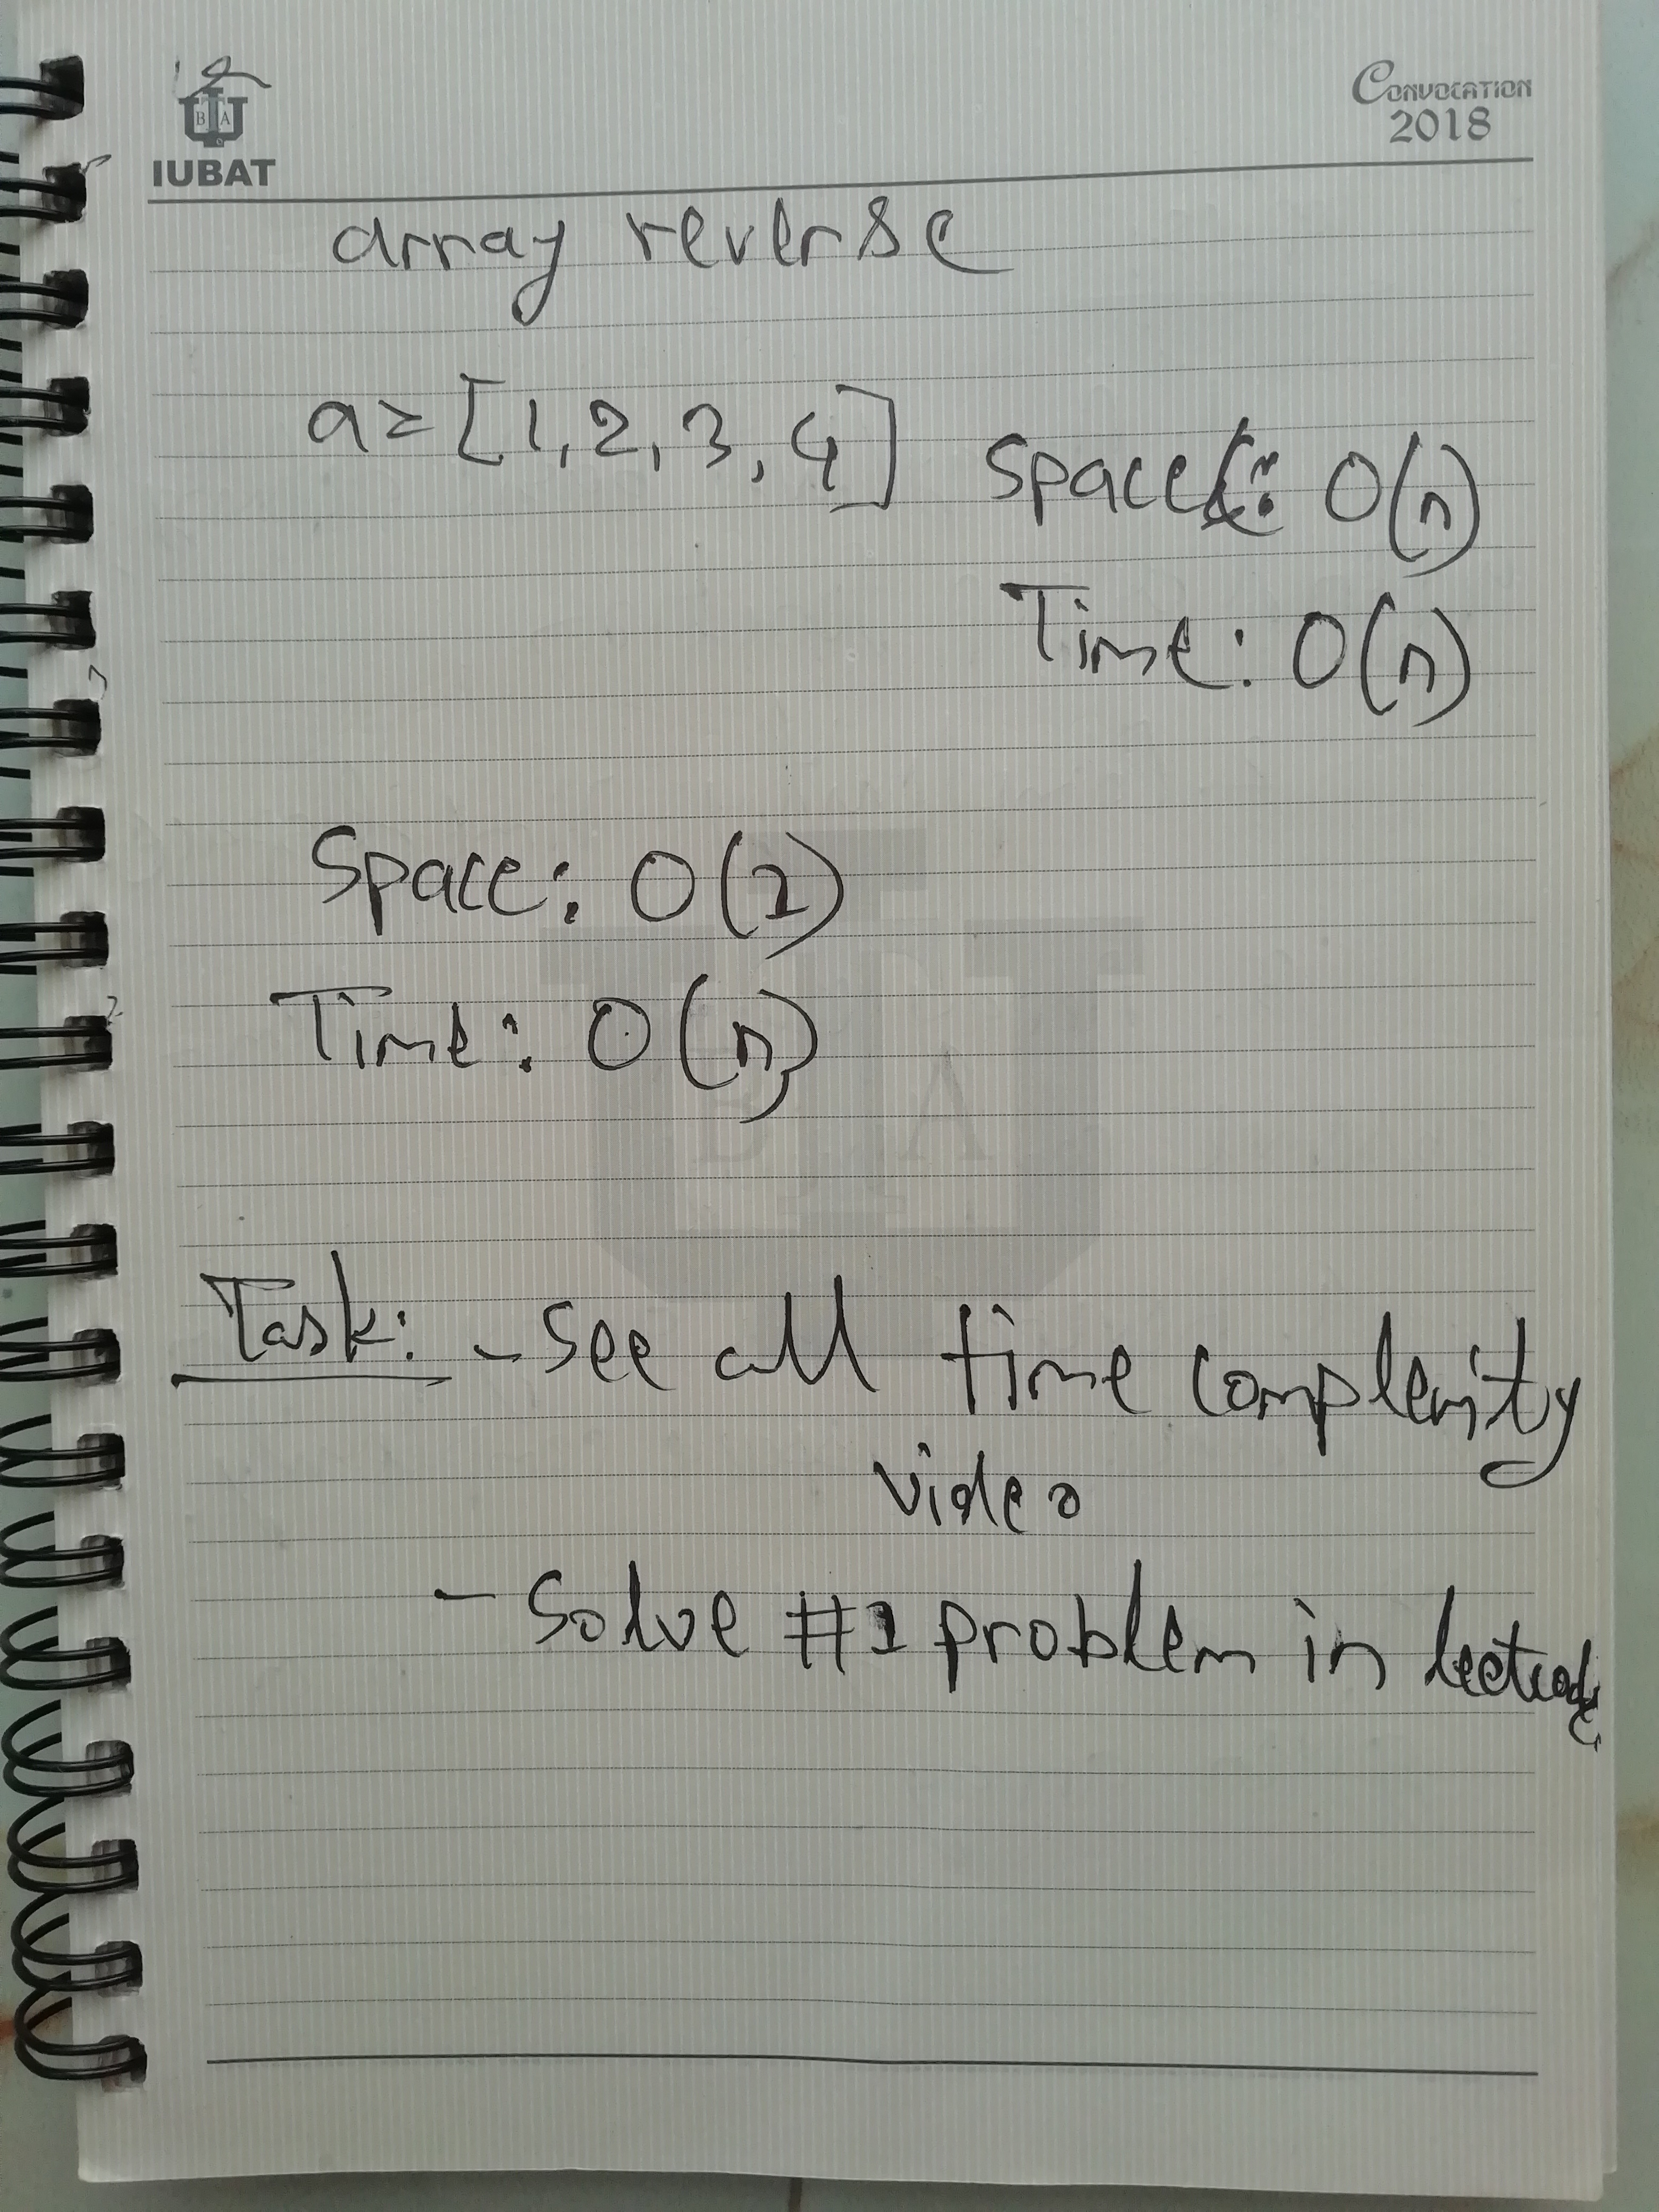 IUBAT
CONVOCATION
2018
array reverse
a=[1,2,3,4]
Space: O(n)
Time: O(n)
Space: O(1)
Time: O(n)
Task: - See all time complexity
video
- Solve #1 problem in leetcode